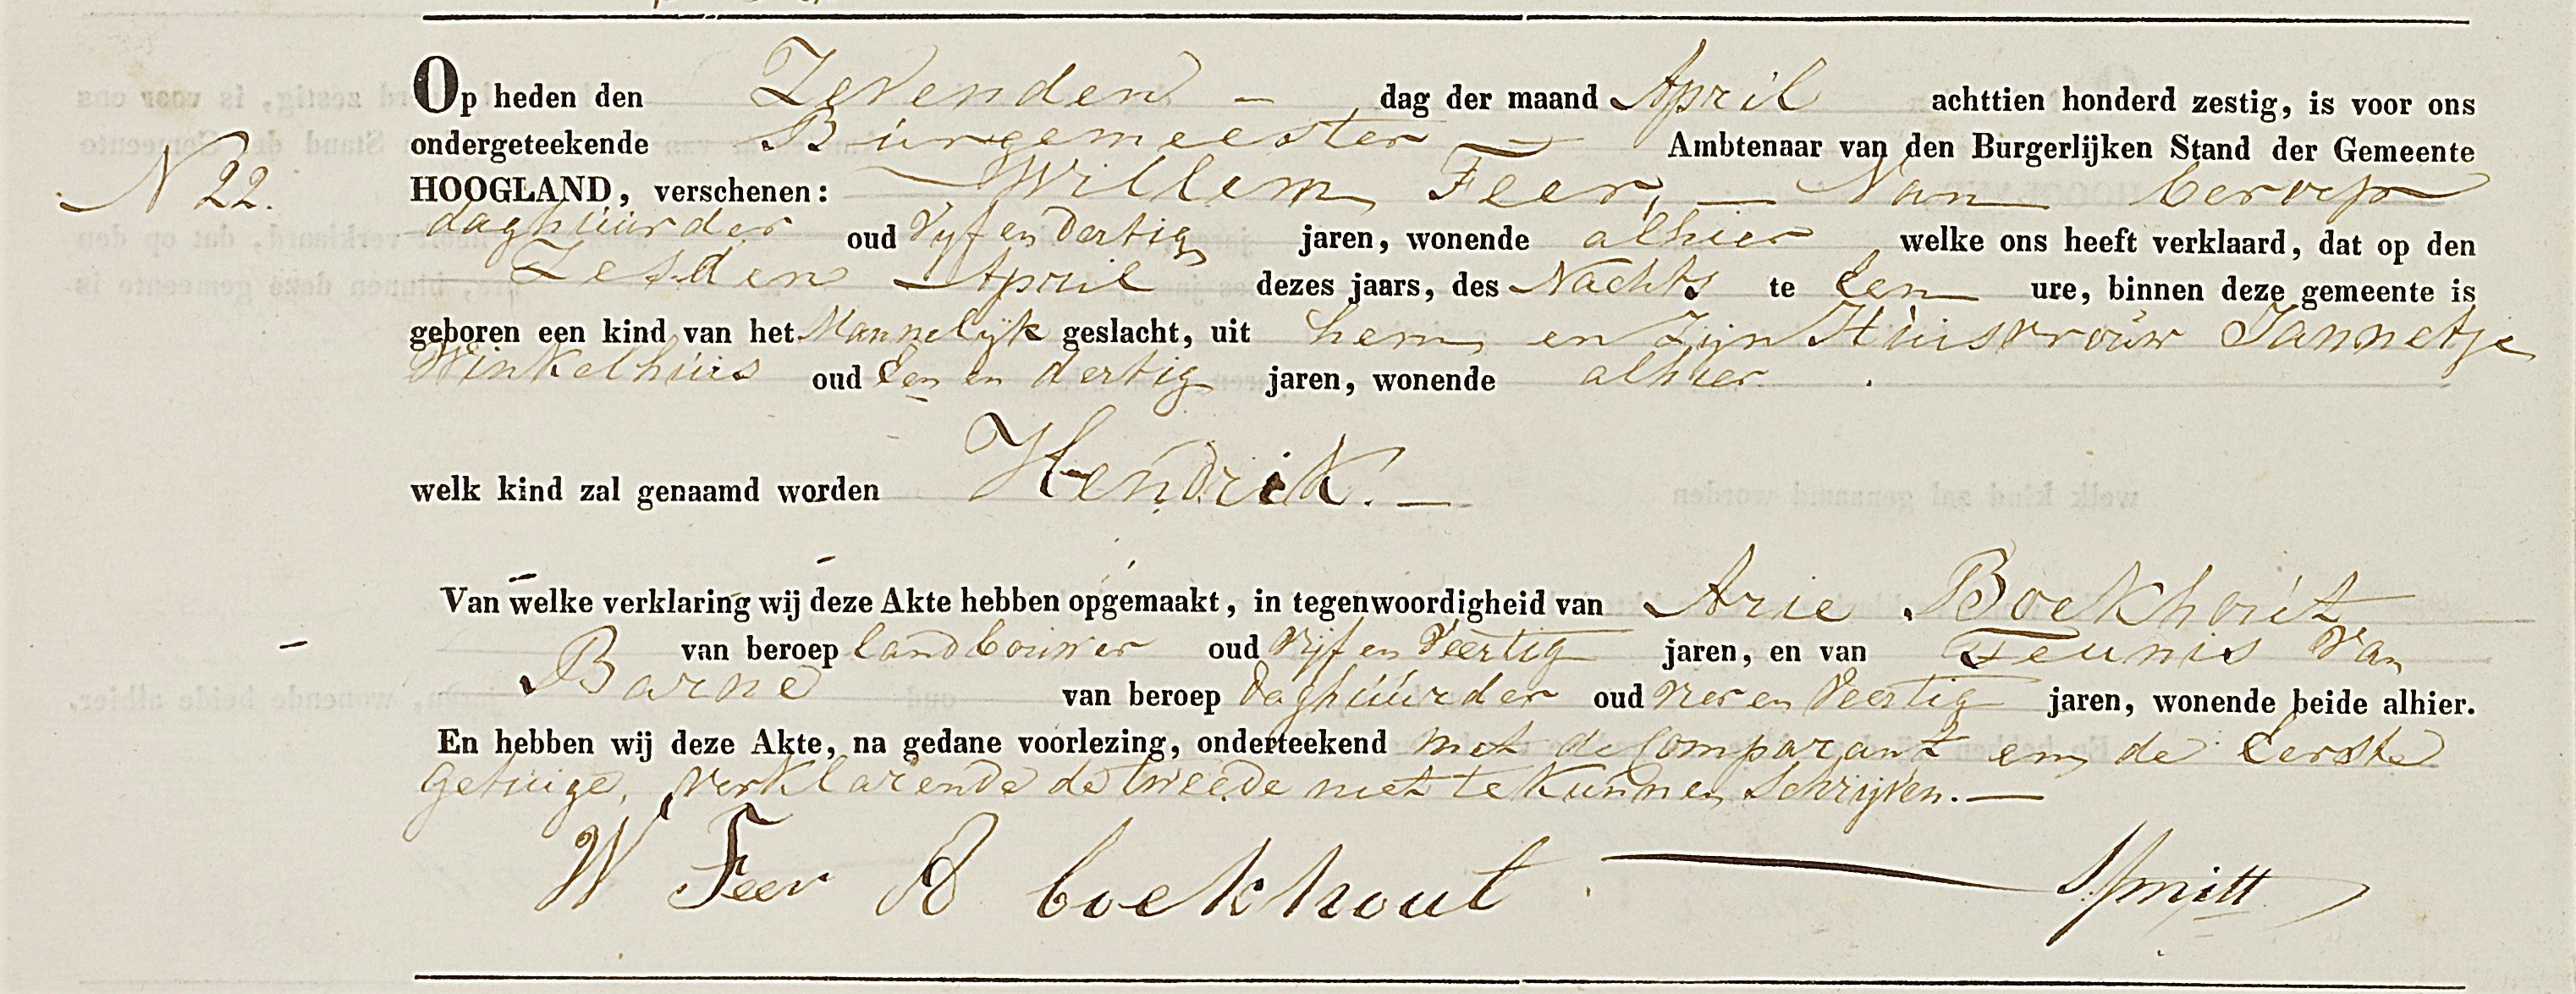 Op heden den Zevenden - dag der maand April achttien honderd zestig, is voor ons
ondergeteekende Burgemeester — Ambtenaar van den Burgerlijken Stand der Gemeente
N 22. HOOGLAND, verschenen: Willem Feer, — Van beroep
daghuurder oud Vyf en Dertig jaren, wonende alhier welke ons heeft verklaard, dat op den
Zesden April dezes jaars, des Nachts te Een ure, binnen deze gemeente is
geboren een kind van het Mannelijk geslacht, uit hem en Zijn Huisvrouw Jannetje
Winkelhuis oud Een en dertig jaren, wonende alhier.
welk kind zal genaamd worden Hendrik. —
Van welke verklaring wij deze Akte hebben opgemaakt, in tegenwoordigheid van Arie Boekhout
van beroep landbouwer oud Vijf en Veertig jaren, en van Teunis Van
Barne van beroep Daghuurder oud Vier en Veertig jaren, wonende beide alhier.
En hebben wij deze Akte, na gedane voorlezing, onderteekend met de Comparant en de Eerste
getuige, verklarende de tweede niet te kunnen Schrijven. —
W Feer A boekhout — Smitt